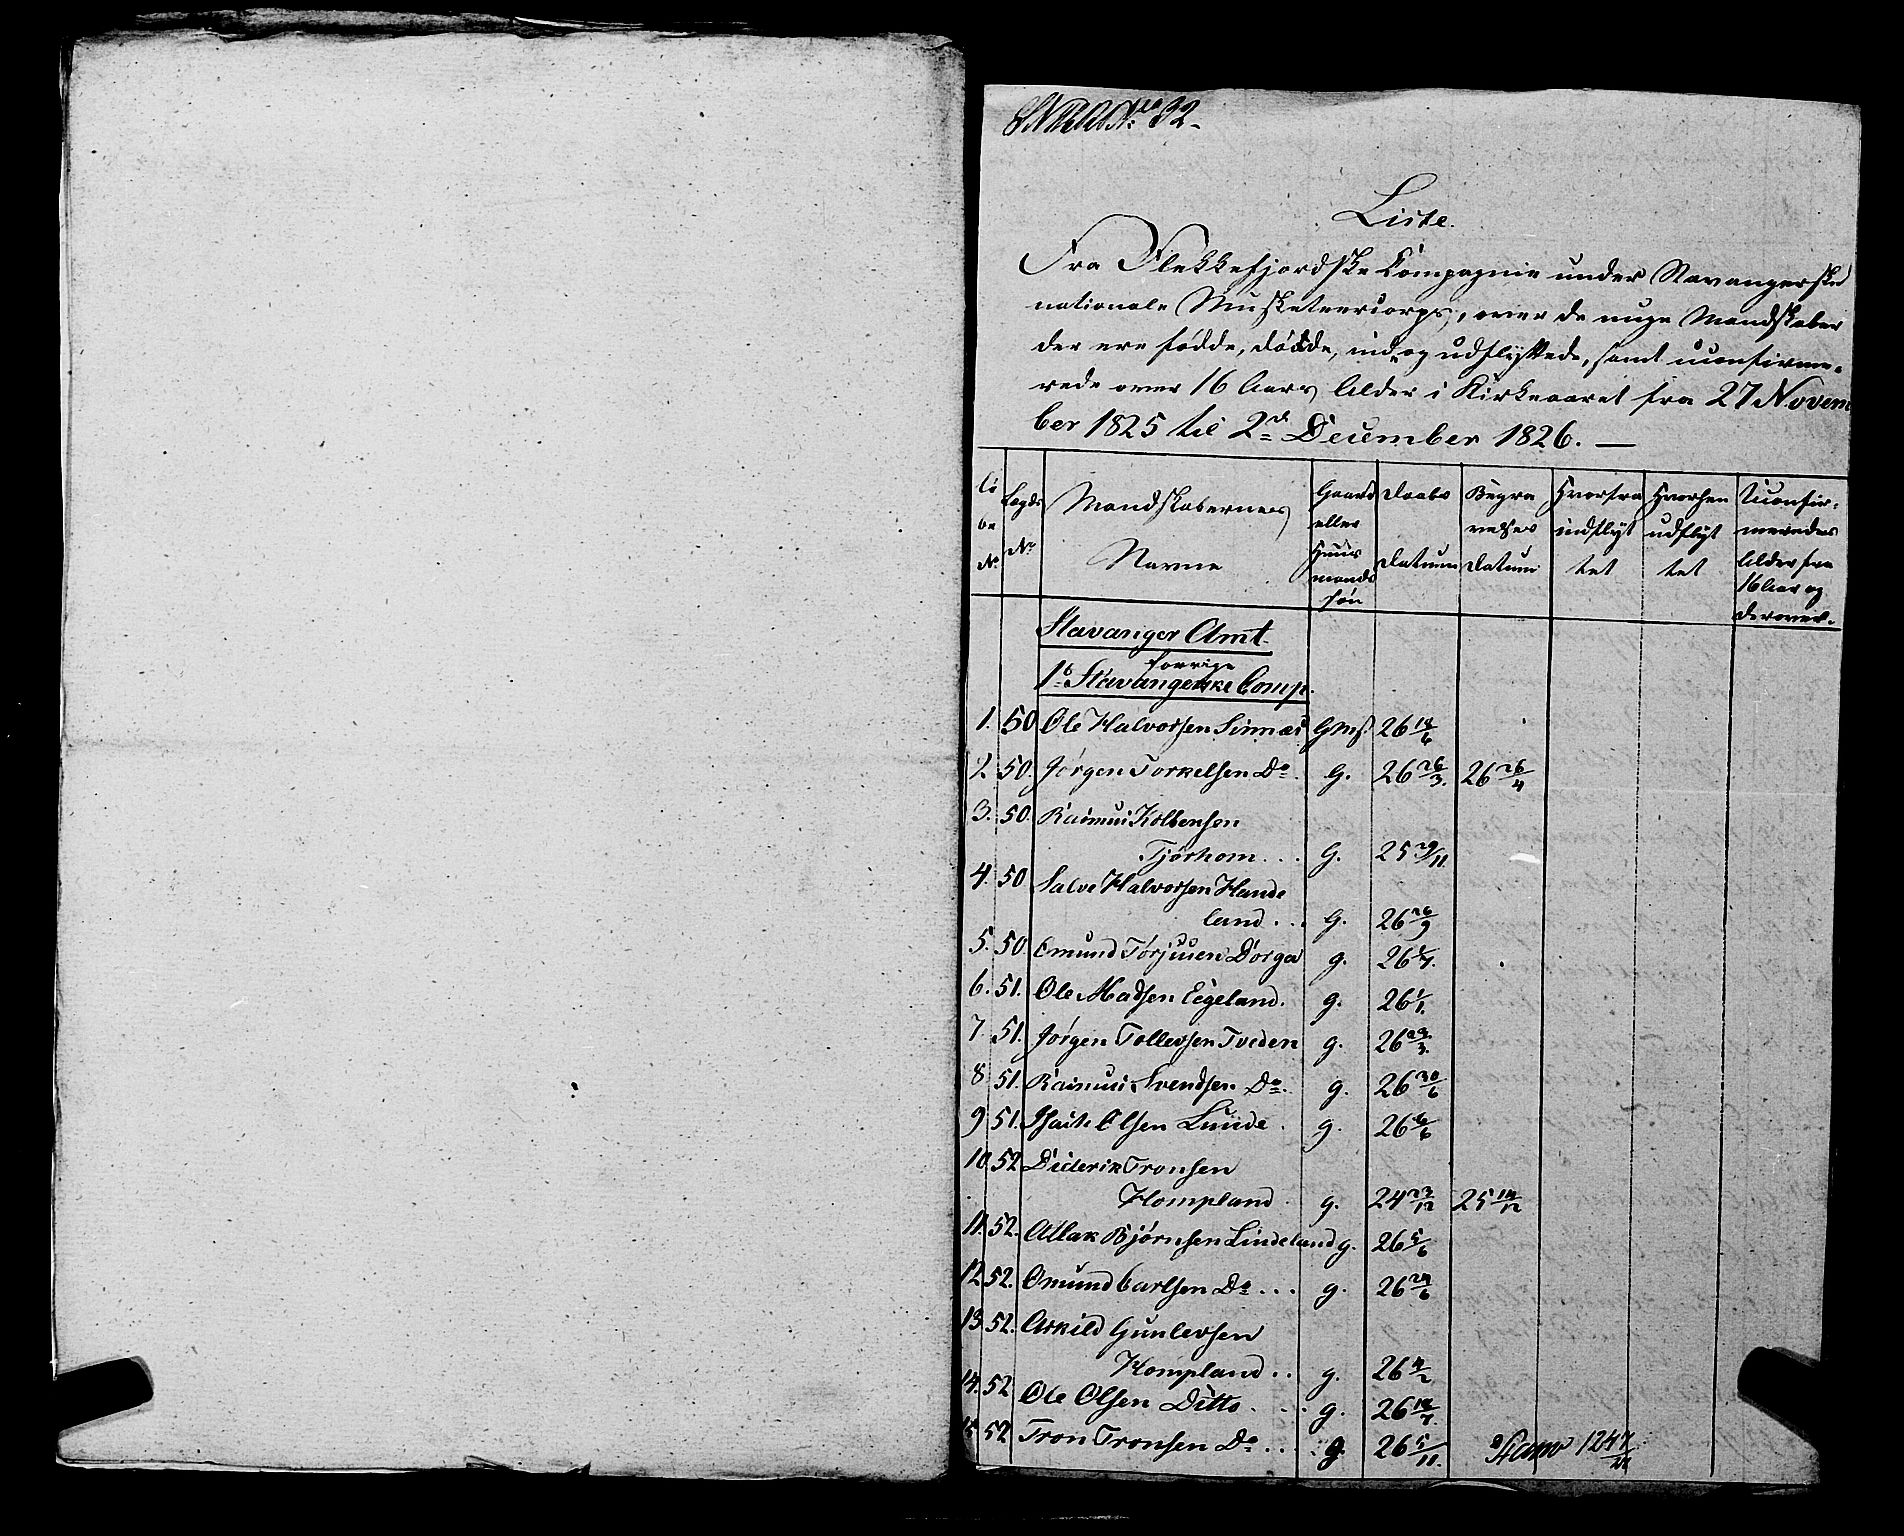 No 32.
Liste.
Fra Flekkefjordske Compagnie under Stavangerske
nationale Musketeercorps, over de unge Mandskaber
der ere fødde, døde, ind og udflyttede, samt uconfirme-
rede over 16 Aars Alder i Kirkeaaret fra 27 Novem
ber 1825 til 2d December 1826. —
Lö be No | Lægds No | Mandskabernes Navne | Gaard eller Huus mands søn | Daabs Datum | Begra velses Datum | Hvorfra indflyt tet | Hvorhen udflyt tet | Uconfir- meredes Alder fra 16 Aar og derover.
Stavanger Amt.
forrige
1e Stavangerske Comp.
1. 50 Ole Halvorsen Sinnæs Gmf 26 18/6
2 50. Jørgen Torkelsen Do. G. 26 26/3. 26 26/4
3. 50. Rasmus Kolbensen
Tjørhom... G. 25 29/11.
4. 50 Salve Halvorsen Hande
land... G. 26 26/9
5. 50. Emund Dorga g. 26
6. 51. Ole Madsen Eegeland. g. 26 1/1.
7. 51. Jørgen Tollevsen Tveden g. 26 29/3.
8 51. Rasmus Svendsen Do. g. 26 30/6
9 51. Olsen Lunde. g. 26
10. 52 Diderik Tronsen
Hompland. g. 24 23/12 25 14/12
11. 52. Atlak Bjørnsen Lindeland g. 26 5/6
12 52. Omund Carlsen Do... g. 26 24/6
13 52. Askild Gunlevsen
Hompland.. g. 26
14. 52 Ole Olsen Ditto.... g. 26
15 52 Tron Tronsen Do.... g. 26 5/11.